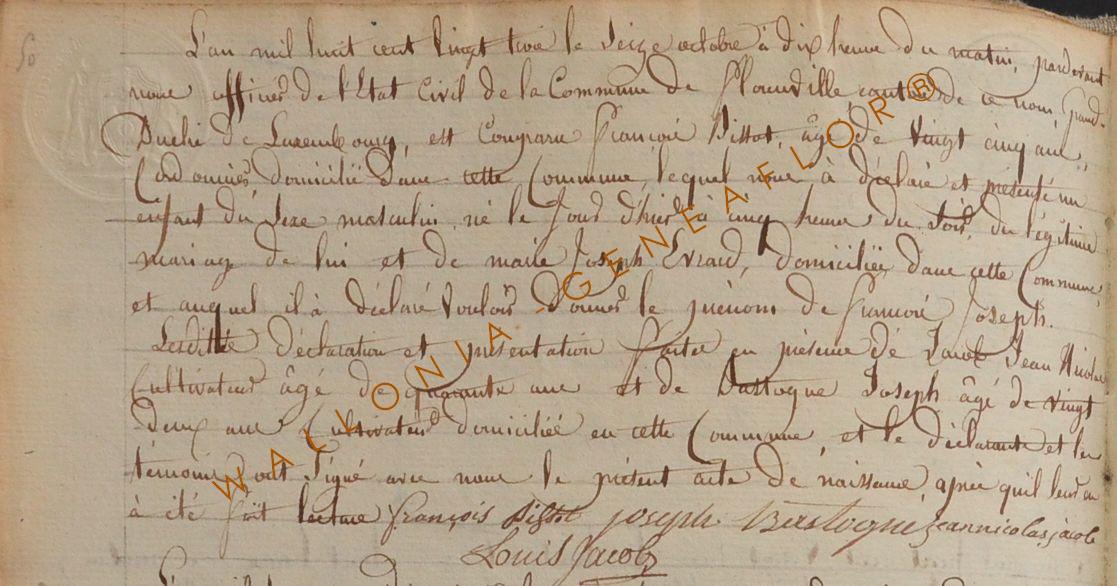 50
L'an mil huit cent vingt trois le seize octobre à dix heures du matin, pardevant
nous officier de l'Etat Civil de la Commune de Florenville, canton de ce nom, grand
Duché de Luxembourg, est comparu françois Pissot, âgé de vingt cinq ans,
Cordonnier, domicilié dans cette Commune, lequel nous à déclaré et présenté un
enfant du sexe masculin né le jour d'hier à cinq heures du soir, du légitime
mariage de lui et de marie Joseph Evrard, domiciliée dans cette Commune,
et auquel il à déclaré vouloir donner le prénom de françois Joseph.
Lesdittes déclaration et présentation faites en présence de Jacob Jean Nicolas
Cultivateur âgé de quarante ans et de Bastogne Joseph âgé de vingt
deux ans Cultivateur domiciliés en cette Commune, et le déclarant et les
témoins ont signé avec nous le présent acte de naissance, après qu'il leur en
à été fait lecture françois Joseph Bastogne jean nicolas jacob
Louis Jacob
WALLONIA - GENEAFLOR®